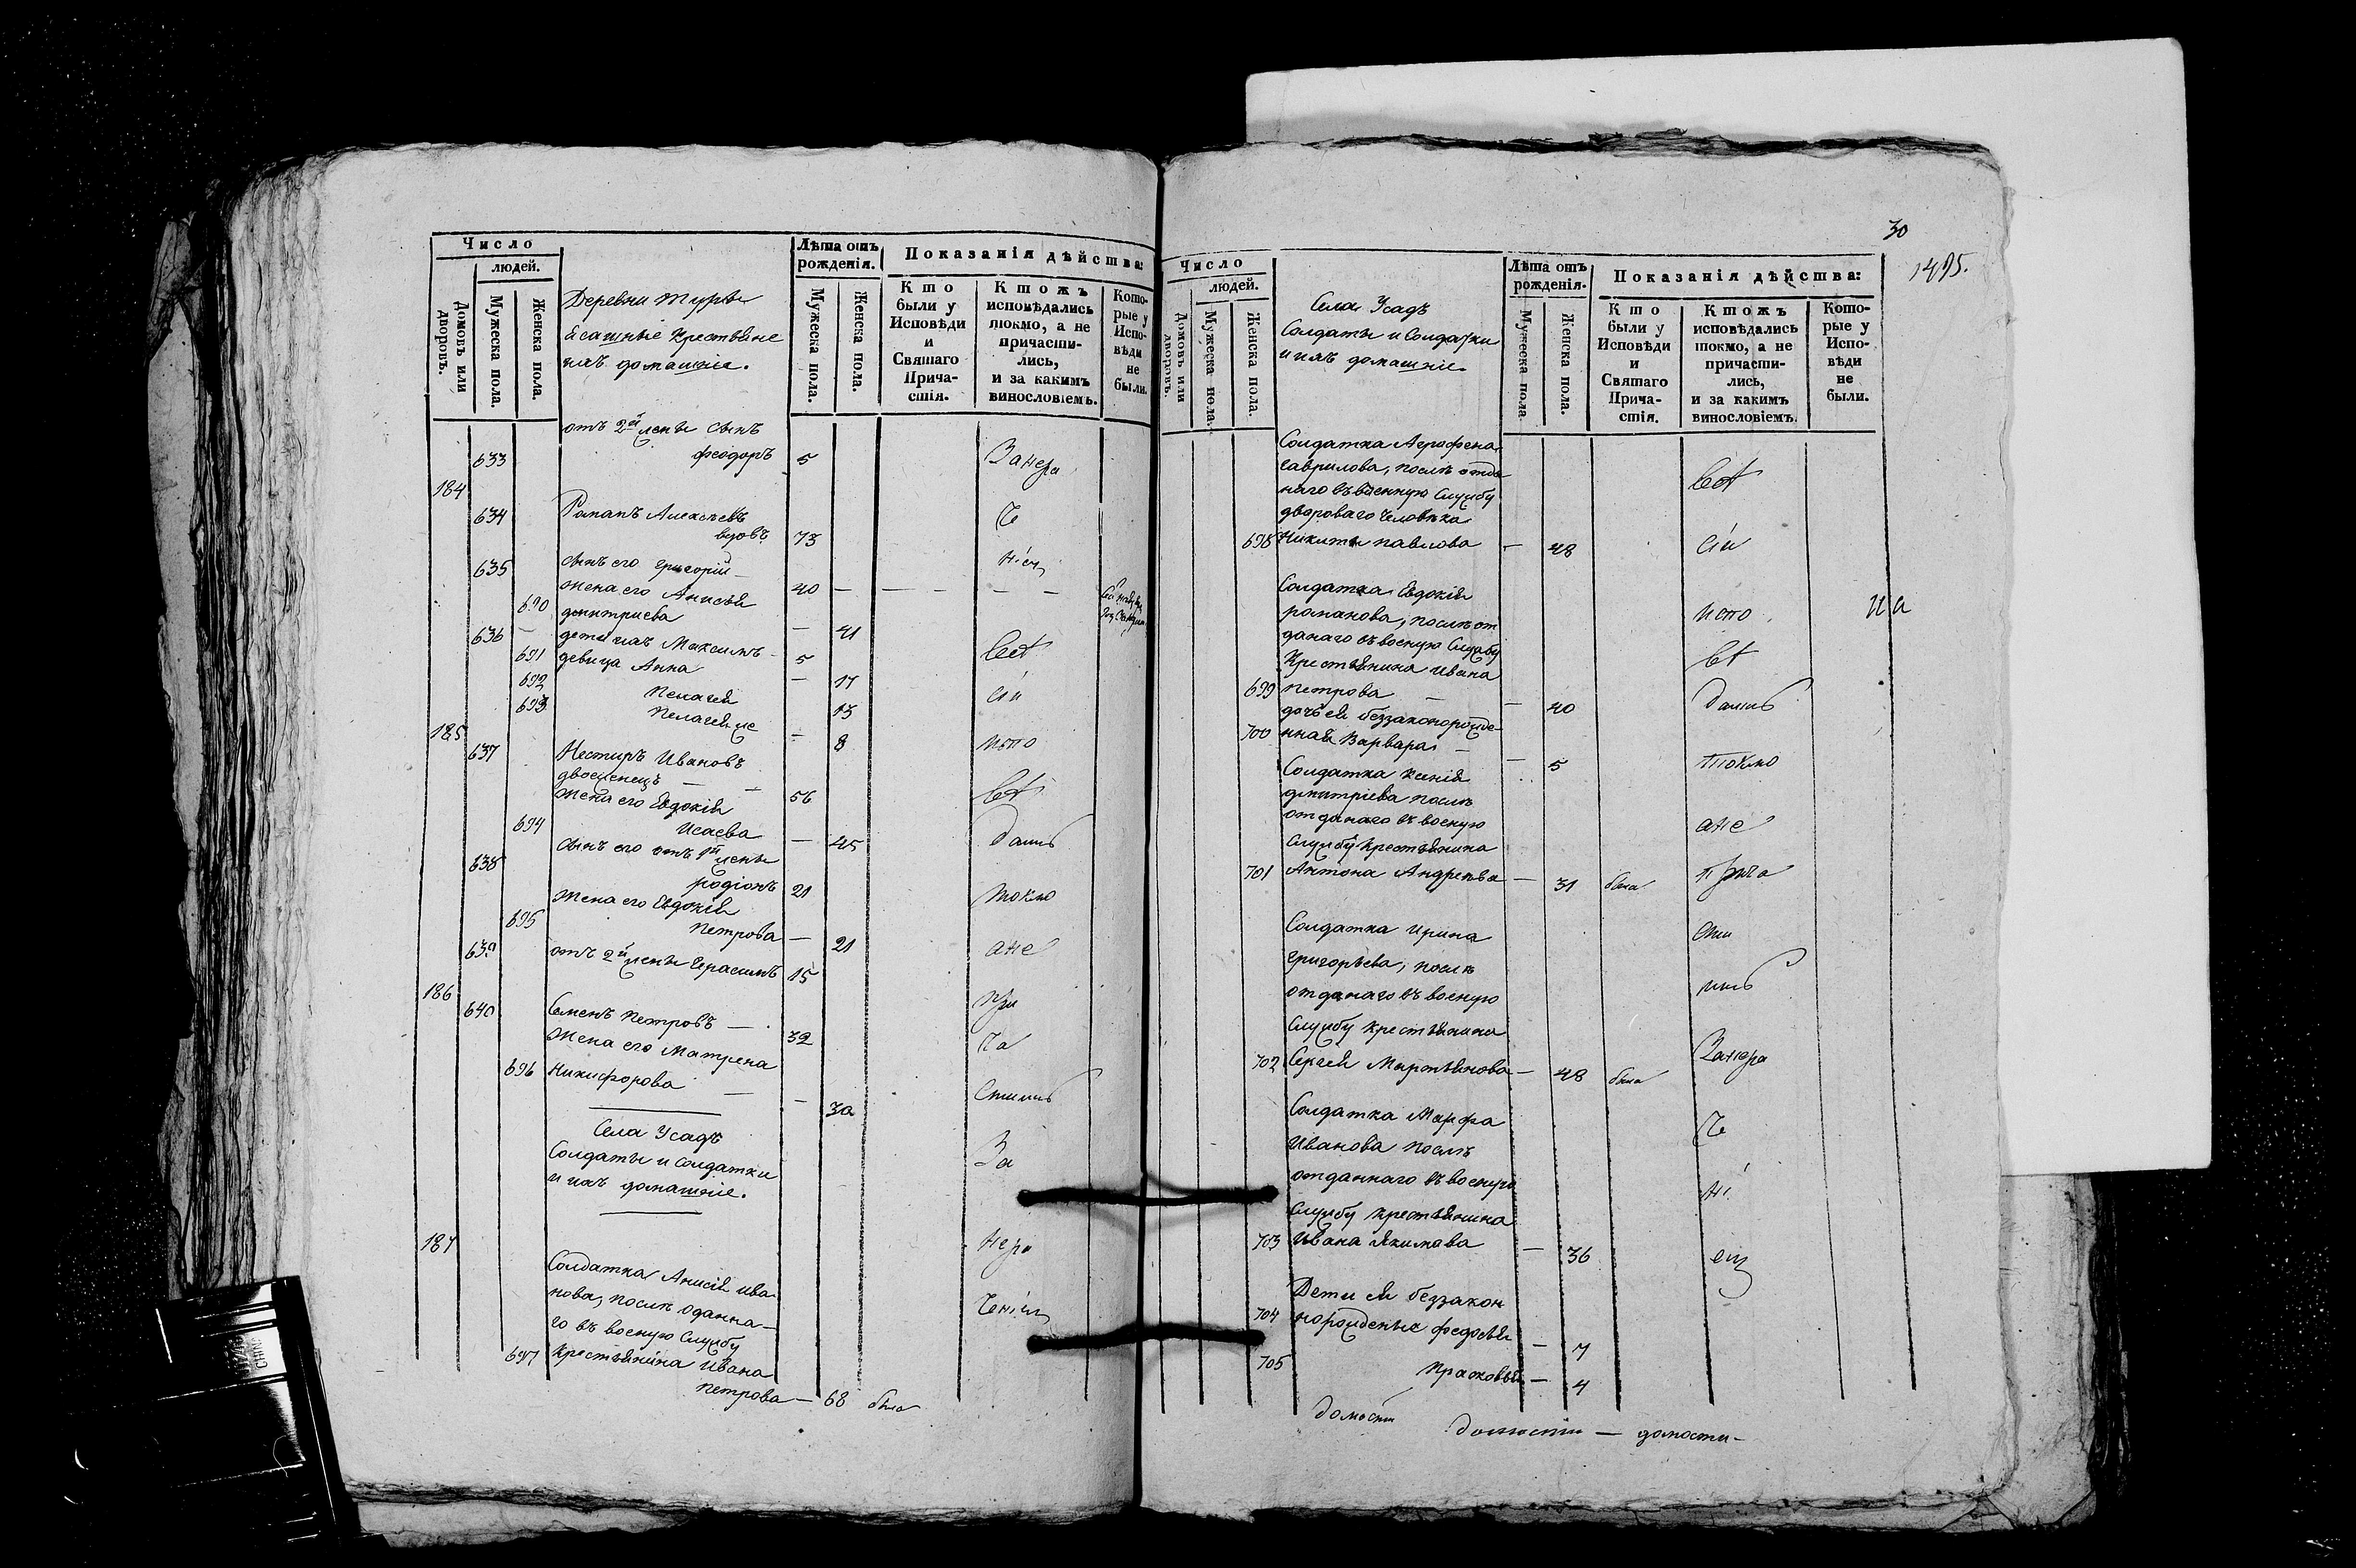 Число
людей.
Домовъ или дворовъ.
Мужеска пола.
Женска пола.
Деревни Туры
Есашные крестьяне
ихъ домашніе.
Лѣта отъ рожденія.
Мужеска пола.
Женска пола.
Показанія дѣйства:
Кто были у Исповѣди и Святаго Причастія.
Ктожъ исповѣдались токмо, а не причастились, и за какимъ винословіемъ.
Которые у Исповѣди не были.
отъ 2й жены сынъ
633 Феодоръ 5 Занера
184
634 Романъ Алексѣевъ Че
вдовъ 73
635 сынъ его Григорій 40 ніем
жена его Анисья
690 Дмитриева — 41
636 дети ихъ Максимъ 5 всѣ
691 девица Анна — 17
692 Пелагея 13 сіи
693 Пелагея же — 8 испо
185
637 Нестиръ Ивановъ
двоеженецъ — 56 вѣ
жена его Евдокія
694 Исаева — 45 дались
сынъ его отъ 1й жены
638 Родіонъ 21 токмо
жена его Евдокія
695 Петрова — 21
639 отъ 2й жены Герасимъ 15 ане
186
640 Семенъ Петровъ — 32 при
жена его Матрена ча
696 Никифорова — 30 стились
Села Усадъ
Солдаты и солдатки
и ихъ домашніе.
За
187 нера
Солдатка Анисія Ива
нова, послѣ оданна-
го въ военую службу ченіем
697 крестьянина Ивана
Петрова — 68 была
30
1495.
Число
людей.
Домовъ или дворовъ.
Мужеска пола.
Женска пола.
Села Усадъ
Солдаты и Солдатки
и ихъ домашніе.
Лѣта отъ рожденія.
Мужеска пола
Женска пола.
Показанія дѣйства:
Кто были у Исповѣди и Святаго Причастія.
Ктожъ исповѣдались токмо, а не причастились, и за какимъ винословіемъ.
Которые у Исповѣди не были.
Солдатка Аграфена
Гаврилова, послѣ отда всѣ
наго въ военную службу
двороваго человѣка
698 Никиты Павлова — 48 сіи
Солдатка Евдокія
Романова, послѣ от испо
данаго въ военую службу
крестьянина Ивана вѣ
699 Петрова — 40 дались
дочь ея беззаконорожде
700 нная Варвара — 5 токмо
Солдатка Ксенія
Дмитріева послѣ
отданаго въ военую ане
службу крестьянина
701 Антона Андреева — 31 была прича
Солдатка Ирина сти
Григорьева, послѣ
отданаго въ военую лись
службу крестьянина
702 Сергея Мартьянова — 48 была Занера
Солдатка Марфа
Иванова послѣ че
отданнаго въ военую ні
службу крестьянина
703 Ивана Якимова — 36 ем
Дети ея беззакон
704 норожденые Федосья — 7
705 Прасковья — 4